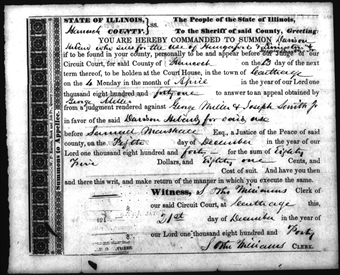 STATE OF ILLINOIS, } ss. The People of the State of Illinois,
Hancock COUNTY. To the Sheriff of said County, Greeting:
YOU ARE HEREBY COMMANDED TO SUMMON Davison
Hibard who sues for the use of
if to be found in your county, personally to be and appear before our Judge of our
Circuit Court, for said County of Hancock on the day of the next
term thereof, to be holden at the Court House, in the town of Carthage
on the Monday in the month of April in the year of our Lord one
thousand eight hundred and forty one to answer to an appeal obtained by
George Miller
from a judgment rendered against George Miller & Joseph Smith Jr
in favor of the said Davison Hibard for said use
before Samuel Marshall Esq., a Justice of the Peace of said
county, on the Fifth day of December in the year of our
Lord one thousand eight hundred and forty for the sum of Eighty
Five Dollars, and Eighty one Cents, and
Cost of suit. And have you then
and there this writ, and make return of the manner in which you execute the same.
Witness, S Otho Williams Clerk of
our said Circuit Court, at Carthage this,
21st day of December in the year of
our Lord one thousand eight hundred and Forty
S Otho Williams CLERK.
Summons to Appeal